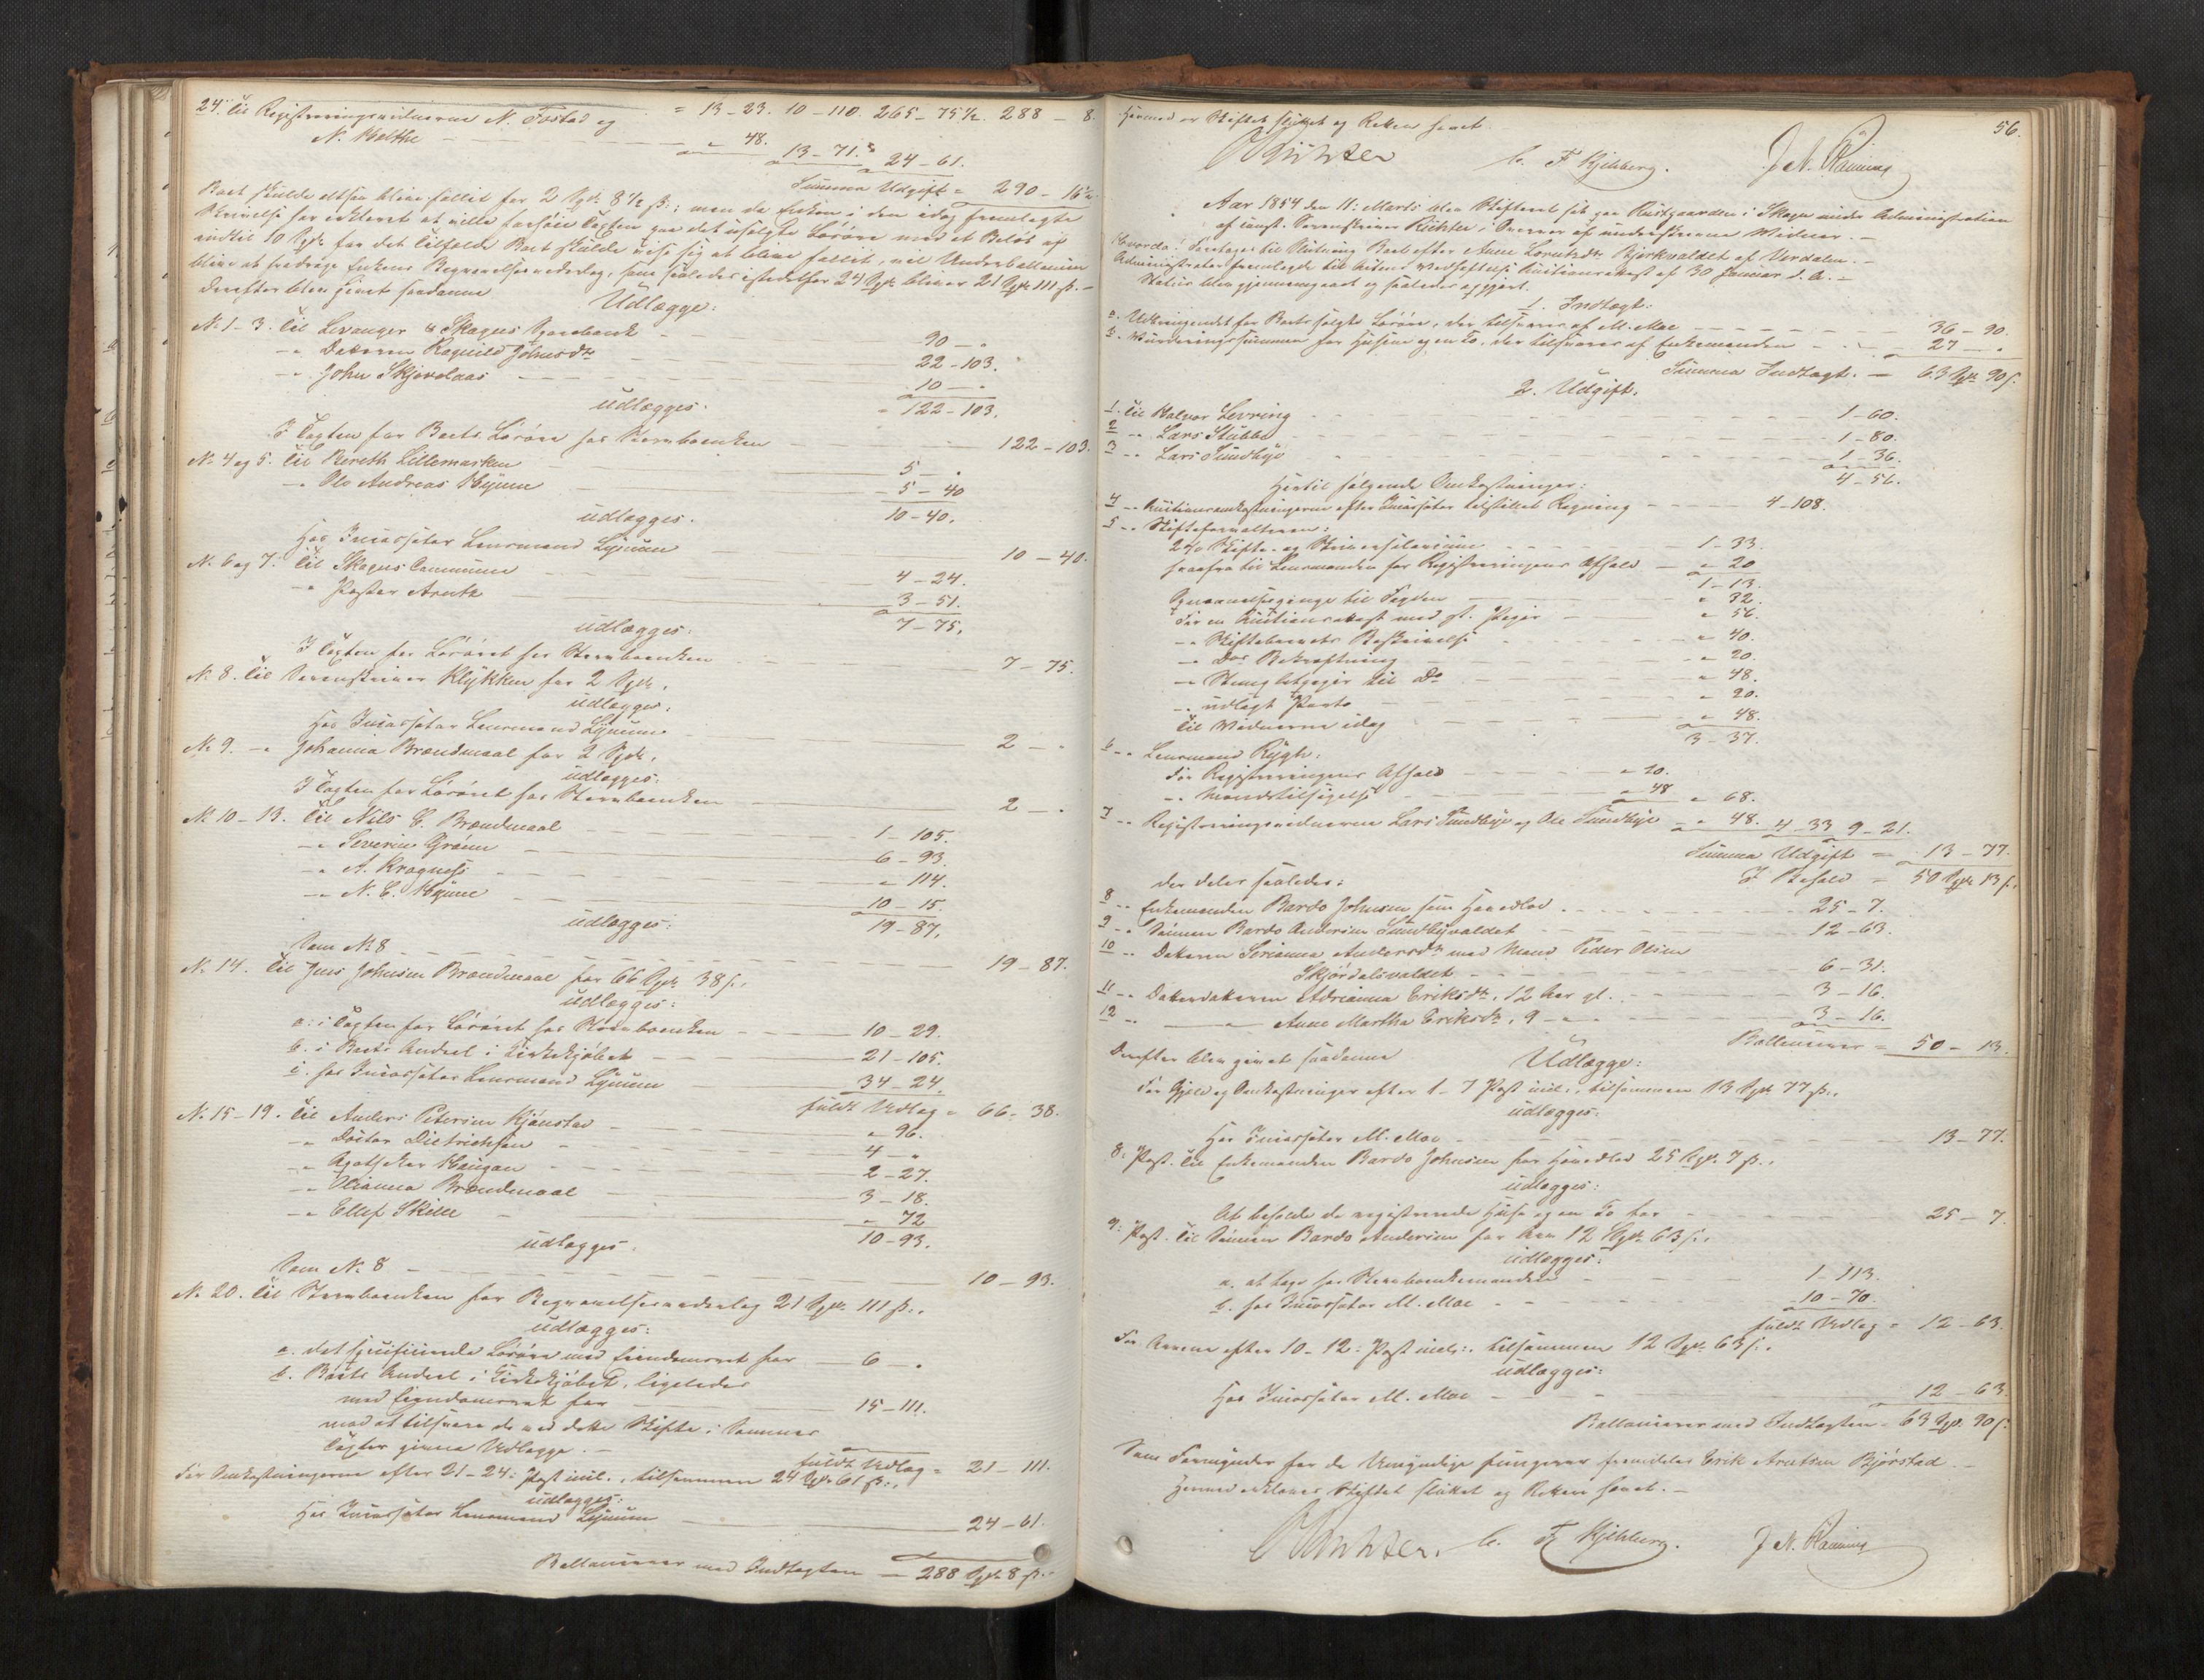 24. Til Registreringsvidnerne N. Tostad og = 13-23. 10-110. 265-75½. 288 - 8.
N. Balthe - - - " 48.
13-71. 24-61.
Summa Udgift = 290-16½
Boet skulde altsaa blive fallit for 2 Spd. 8½ ß.; men da Enken i den idag fremlagte
Skrivelse har erklæret at ville forhøie Taxten paa det usolgte Løsøre med et Beløb af
indtil 10 Spd. for det Tilfælde Boet skulde vise sig at blive fallit, vil Underballancen
blive at fradrage Enkens Begravelsesudlæg, som saaledes istedetfor 24 Spd. bliver 21 Spd. 111 ß. -
Derefter blev givet saadanne
Udlægge:
No 1-3. Til Levanger & Skogns Sparebank - 90 - "
-" Datteren Ragnild Johnsdtr - 22-103.
-" John Skjerdaas - 10 - "
udlægges. 122-103.
I Taxten for Boets Løsøre hos Stervboenken - 122-103.
No 4 og 5. Til Bereth Lillemarken - 5 - "
-" Ole Andreas Hynne - 5-40
udlægges. 10-40.
Hos Incassator Lensmand Lynum - 10-40.
No 6 og 7. Til Skogns Commune - 4-24.
-" Pastor Arntz - 3-51.
udlægges: 7-75.
I Taxten for Løsøret hos Stervboenken - 7-75.
No 8. Til Sorenskriver Klykken for 2 Spd.
udlægges:
Hos Incassator Lensmand Lynum - 2 - "
No 9. -" Johanna Brændmaal for 2 Spd.
udlægges:
I Taxten for Løsøret hos Stervboenken - 2 - "
No 10-13. Til Nils C. Brændmaal - 1-105.
-" Severin Grønn - 6-93.
-" A. Kragness - " 114.
-" N. C. Hynne - 10-15.
udlægges: 19-87.
Som No 8 - 19-87.
No 14. Til Jens Johnsen Brændmaal for 66 Spd. 38 ß.
udlægges:
a. i Taxten for Løsøret hos Stervboenken - 10-29.
b. i Boets Andeel i Kirkekjøbet - 21-105.
c. hos Incassator Lensmand Lynum - 34-24.
fuldt Udlæg = 66-38.
No 15-19. Til Anders Petersen Kjønstad - " 96.
-" Doctor Dietrichsen - 4 - "
-" Apotheker Haugan - 2-27.
-" Olianna Brændmaal - 3-18.
-" Ellef Skille - " 72
udlægges: 10-93.
Som No 8 - 10-93.
No 20. Til Stervboenken for Begravelsesudlæg 21 Spd. 111 ß.
udlægges:
a. det specificerede Løsøre med Eiendomsret for - 6 - "
b. Boets Andeel i Kirkekjøbet, ligeledes
med Eiendomsret for - 15-111.
mod at tilsvare de ved dette Skifte i Sammes
Taxter givne Udlægge. -
fuldt Udlæg = 21-111.
For Omkostningerne efter 21-24: Post incl., tilsammen 24 Spd. 61 ß.
udlægges:
Hos Incassator Lensmand Lynum - 24-61.
Ballancerer med Indtægten = 288 Spd. 8 ß. -
56.
Hermed er Skiftet sluttet og Retten hævet.
Richter C. F. Kjihlberg. J. N. Ramning
Aar 1854 den 11: Marts blev Skifteret sat paa Rustgaarden i Skogn under Administration
af const. Sorenskriver Richter i Overvær af underskrevne Vidner. -
Hvorda: Foretoges til Slutning Boet efter Anne Lorntsdtr Bjørkvaldet af Verdalen. -
Administrator fremlagde til Actens Vedheftelse Auctionsakast af 30 Januar d. A. -
Status blev gjennemgaaet og saaledes opgjort.
1. Indtægt:
a. Udbringendet for Boets solgte Løsøre, der tilsvares af M. Moe - 36-90.
b. Vurderingssummen for Husene og en Ko, der tilsvares af Enkemanden - 27 - "
Summa Indtægt. = 63 Spd. 90 ß.
2. Udgift.
1. Til Halvor Levring - 1-60.
2. -" Lars Stubbe - 1-80.
3. -" Lars Sundbye - 1-36.
4-56.
Hertil følgende Omkostninger:
4. -" Auctionsomkostningerne efter Incassator tilstillet Regning - 4-108.
5. -" Skifteforvalteren:
2% Skifte- og Skriversalarium - 1-33.
herfra til Lensmanden for Registreringens Afhold - " 20
1-13.
Sportelpenge til Fogden - " 32.
For en Auctionsakast med st. Papir - " 56.
-" Skiftebrevets Beskrivelse - " 40.
-" Dos Bekræftning - " 20.
-" Stemplet papir til Do - " 48.
-" udlagt Porto - " 20.
Til Vidnerne idag - " 48.
3-37.
6. -" Lensmand Rygh:
For Registreringens Afhold - " 20.
-" Mandstilsigelse - " 48 " 68.
7. -" Registreringsvidnerne Lars Sundbye og Ole Sundbye - " 48. 4-33 9-21.
Summa Udgift = 13-77.
I Behold = 50 Spd. 13 ß.
der deles saaledes:
8. -" Enkemanden Bardo Johnsen som Hovedlod - 25-7.
9. -" Sønnen Bardo Andersen Sundbyvaldet - 12-63.
10. -" Datteren Serianna Andersdtr med Mand Peder Olsen
Skjørdalsvaldet - 6-31.
11. -" Datterdatteren Adrianna Eriksdtr, 12 Aar gl. - 3-16.
12. -" - " - Anne Martha Eriksdtr, 9 - " - 3-16.
Ballancerer = 50-13.
Derefter blev givet saadanne
Udlægge:
For Gjeld og Omkostninger efter 1-7 Post incl., tilsammen 13 Spd. 77 ß.
udlægges:
Hos Incassator M. Moe - 13-77.
8: Post. Til Enkemanden Bardo Johnsen for Hovedlod 25 Spd. 7 ß.
udlægges:
At beholde de registrerede Huse og en Ko for - 25-7.
9: Post. Til Sønnen Bardo Andersen for Arv 12 Spd. 63 ß.
udlægges:
a. at tage hos Stervboenkemanden - 1-113.
b. hos Incassator M. Moe - 10-70.
fuldt Udlæg = 12-63.
For Arvene efter 10-12: Post incl:. tilsammen 12 Spd. 63 ß.
udlægges:
Hos Incassator M. Moe - 12-63.
Ballancerer med Indtægten = 63 Spd. 90 ß.
Som Formynder for de Umyndige fungerer fremdeles Erik Arntsen Bjørstad -
Hermed erklæres Skiftet sluttet og Retten hævet. -
Richter. C. F. Kjihlberg. J. N. Ramning